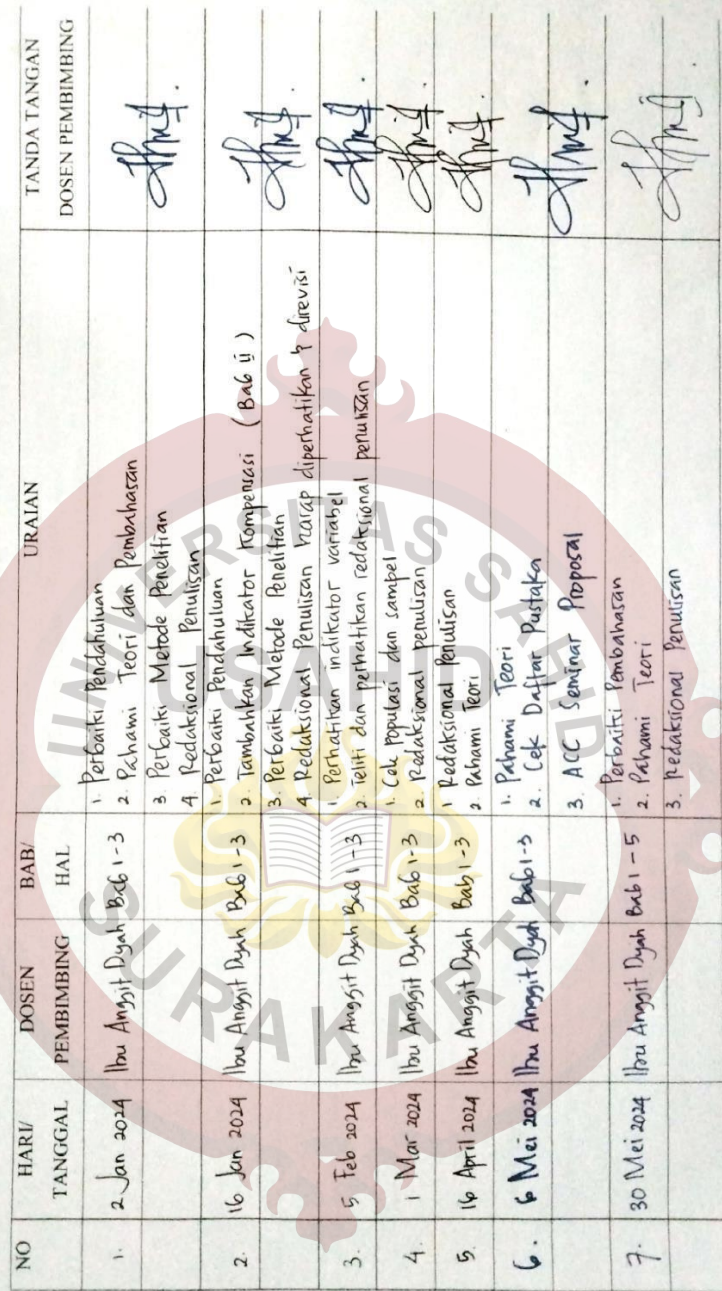 NO HARI/ TANGGAL DOSEN PEMBIMBING BAB/ HAL URAIAN TANDA TANGAN DOSEN PEMBIMBING
1. 2 Jan 2024 Ibu Anggit Dyah Bab 1-3 1. Perbaiki Pendahuluan
2. Pahami Teori dan Pembahasan
3. Perbaiki Metode Penelitian
4. Redaksional Penulisan
2. 16 Jan 2024 Ibu Anggit Dyah Bab 1-3 1. Perbaiki Pendahuluan
2. Tambahkan Indikator Kompensasi (Bab ii)
3. Perbaiki Metode Penelitian
4. Redaksional Penulisan harap diperhatikan & direvisi
3. 5 Feb 2024 Ibu Anggit Dyah Bab 1-3 1. Perhatikan indikator variabel
2. Teliti dan perhatikan redaktsional penulisan
4. 1 Mar 2024 Ibu Anggit Dyah Bab 1-3 1. Cek populasi dan sampel
2. Redaksional penulisan
5. 16 April 2024 Ibu Anggit Dyah Bab 1-3 1 Redaksional Penulisan
2. Pahami Teori
6. 6 Mei 2024 Ibu Anggit Dyah Bab 1-3 1. Pahami Teori
2. Cek Daftar Pustaka
3. ACC Seminar Proposal
7. 30 Mei 2024 Ibu Anggit Dyah Bab 1-5 1. Perbaiki Pembahasan
2. Pahami Teori
3. Redaksional Penulisan
UNIVERSITAS SAHID
USAHID
SURAKARTA